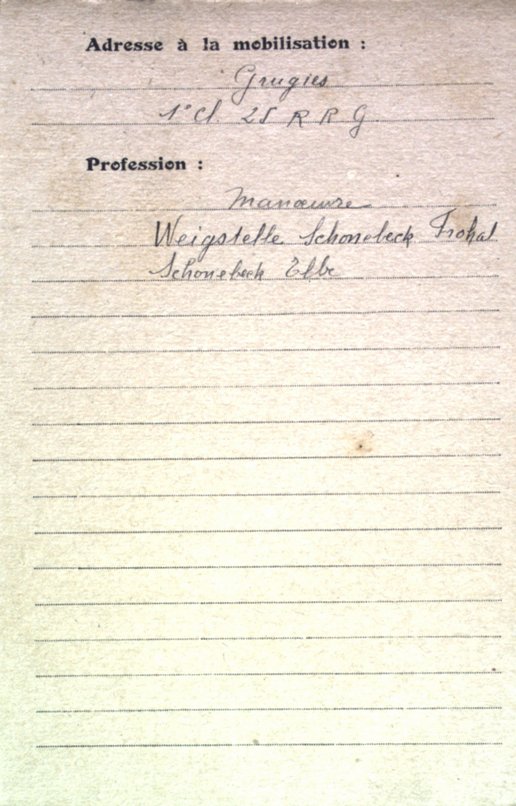 Adresse à la mobilisation :
Grugies
1° Cl. 25 R R G
Profession :
Manœuvre
Weigstelle Schonebeck Frohal
Schonebeck Elbe